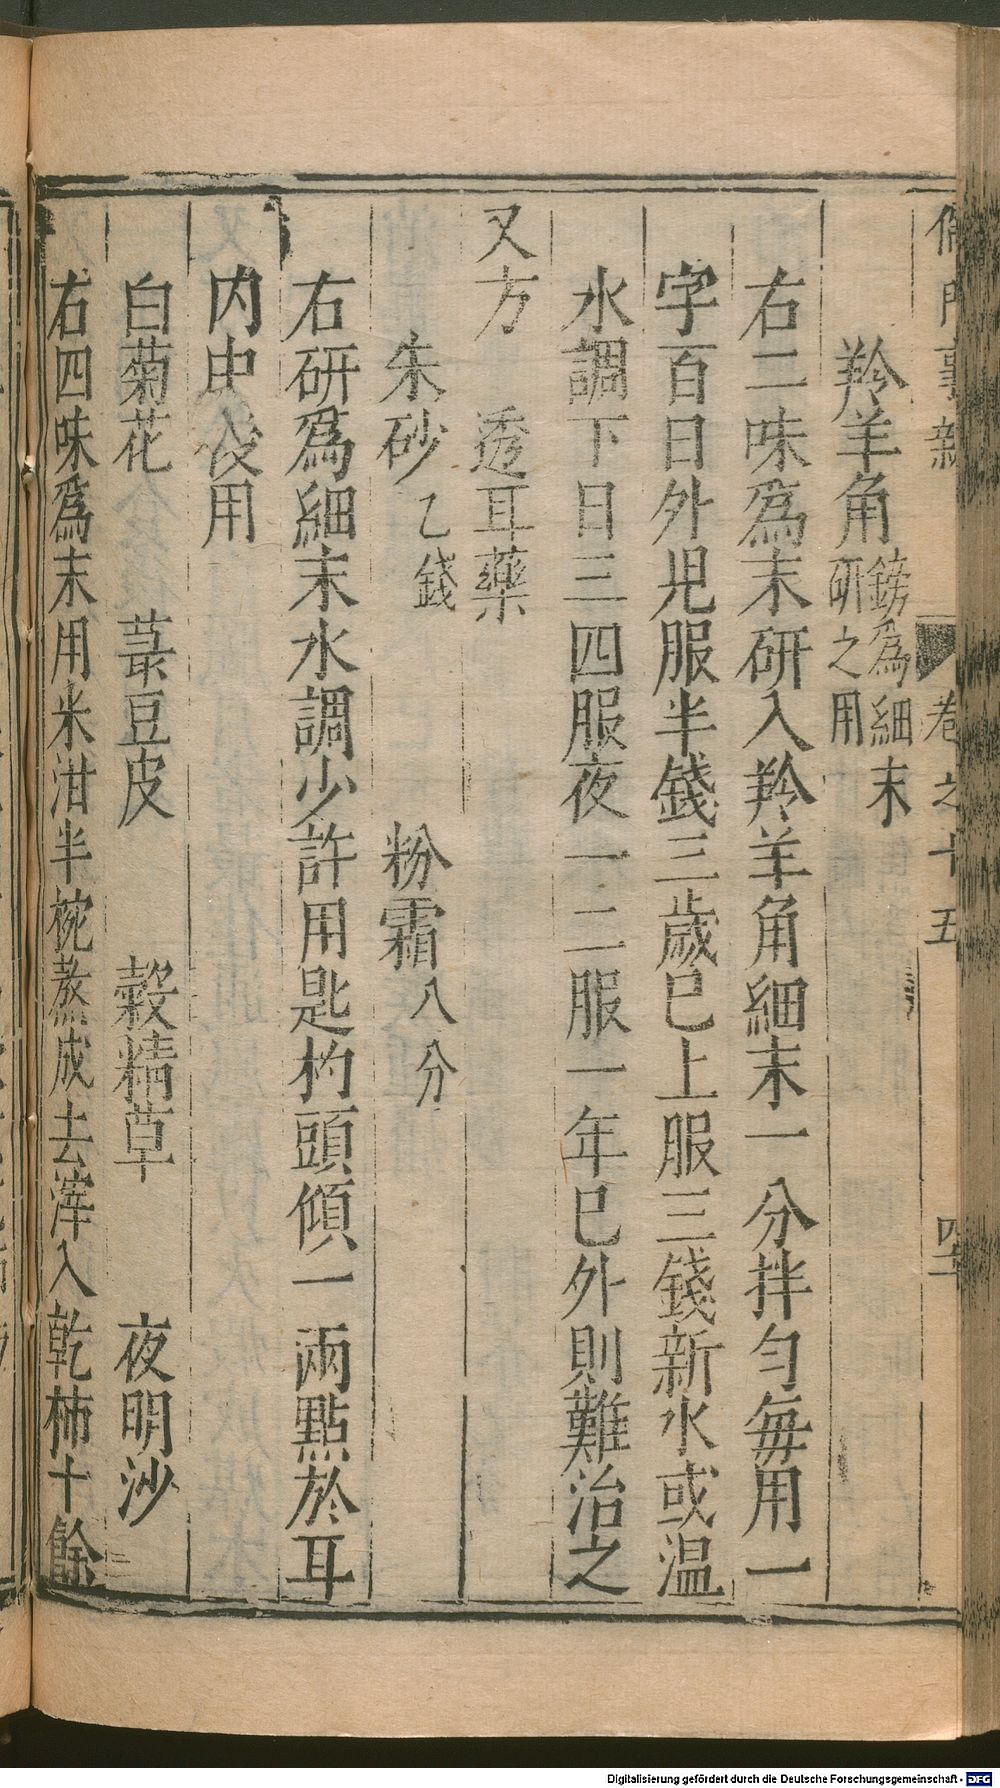 儒門事親 卷之十五 四十
羚羊角 鎊為細末研之用
右二味爲末研入羚羊角細末一分拌勻每用一
字百日外児服半錢三歲已上服三錢新水或温
水調下日三四服夜一二服一年已外則難治之
又方 透耳藥
朱砂 乙錢 粉霜 八分
右研爲細末水調少許用匙杓頭傾一兩點於耳
内中後用
白菊花 菉豆皮 穀精草 夜明沙
右四味爲末用米泔半椀熬成去滓入乾柿十餘
Digitalisierung gefördert durch die Deutsche Forschungsgemeinschaft - DFG